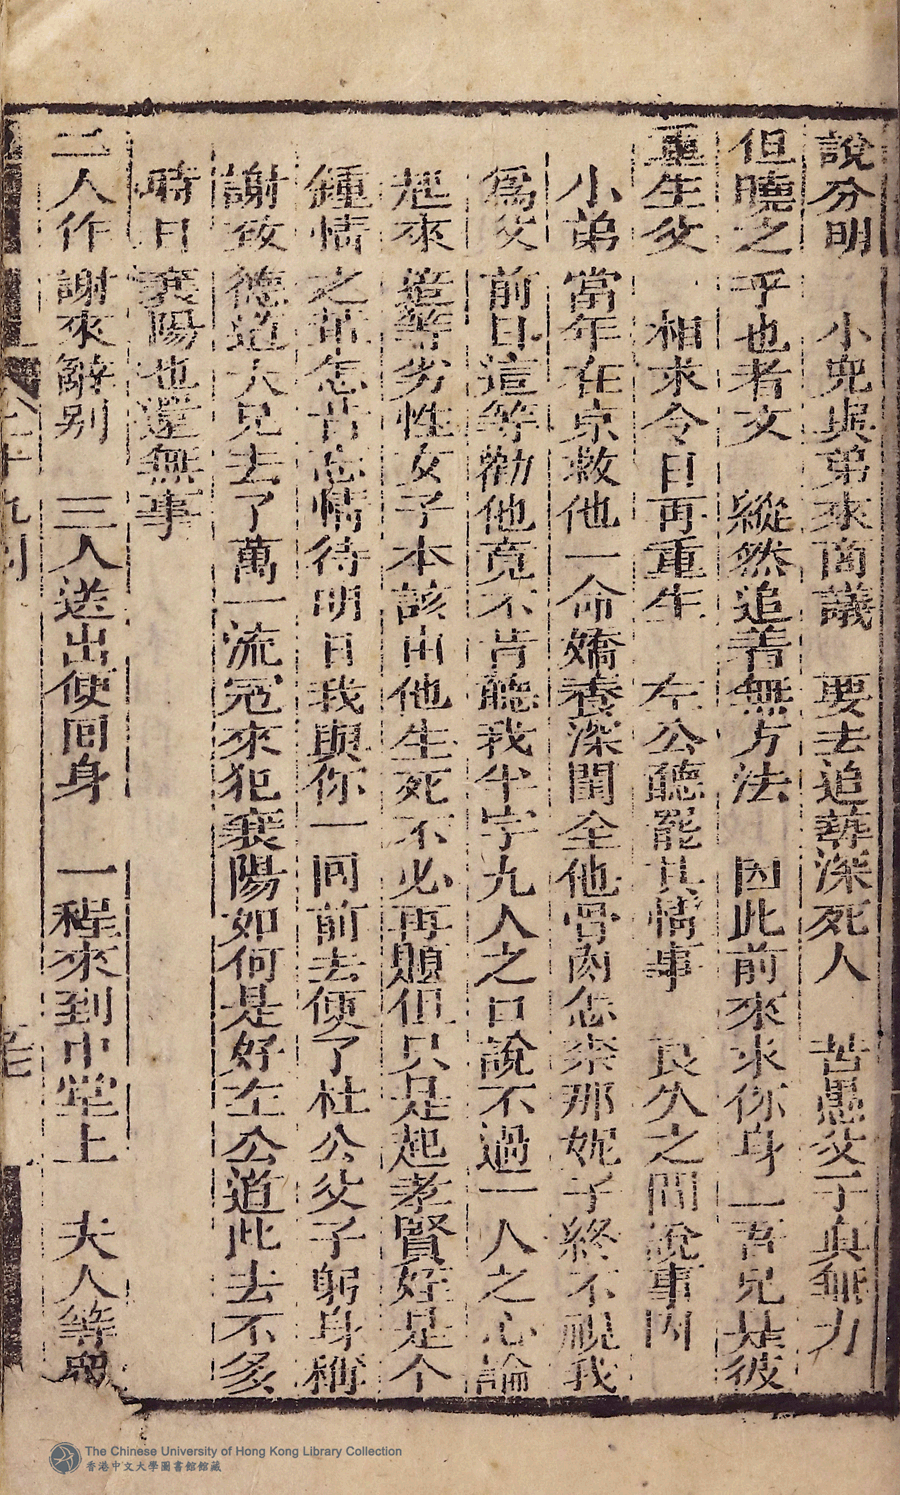 說分明　小兒與弟來商議　要去追葬深死人　苦愚父子真無力
但曉之乎也者文　縱然追着無方法　因此前來求你身　吾兄是彼
重生父　相求今日再重生　左公聽罷其情事　良久之間說事因
小弟當年在京救他一命嬌養深閨全他骨肉怎奈那妮子終不視我
為父前日這等勸他竟不肯聽我半字九人之口說不過一人之心論
起來這等劣性女子本該由他生死不必再題但只是起孝賢姪是个
鍾情之輩怎甘忘情待明日我與你一同前去便了杜公父子躬身稱
謝致德道大兄去了萬一流寇來犯襄陽如何是好左公道此去不多
時日襄陽也還無事
二人作謝來辭別　三人送出便回身　一程來到中堂上　夫人等